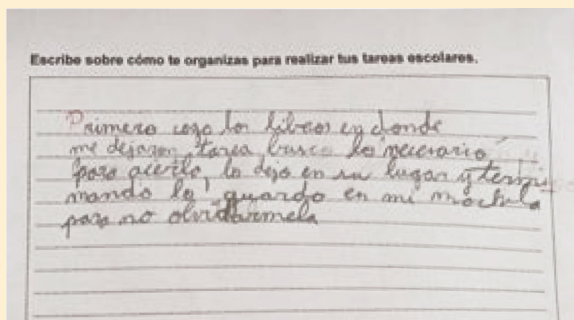 Escribe sobre cómo te organizas para realizar tus tareas escolares.
Primero cogo los libros en donde
me dejaron tarea busco lo necesario
para acerlo, lo dejo en su lugar y termi
nando lo guardo en mi mochila
para no olvidarmela